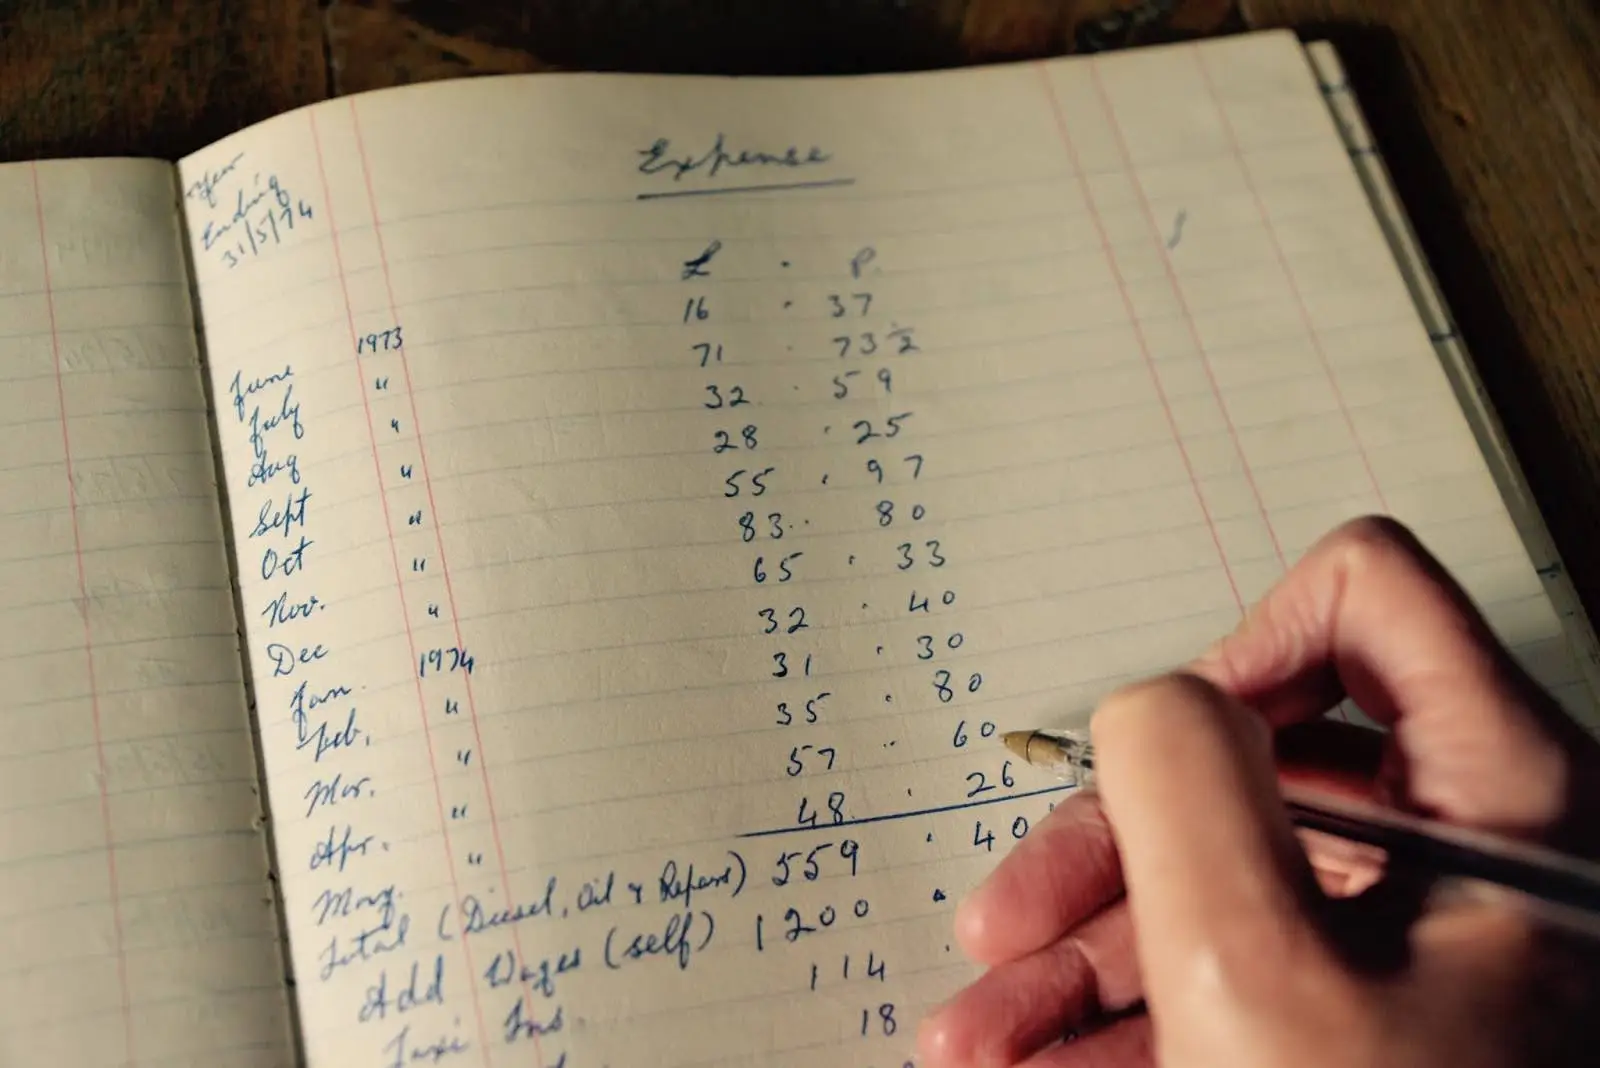 Year
Ending
31/5/74
Expense
£ . P.
June 1973 16 . 37
July " 71 . 73 ½
Aug " 32 . 59
Sept " 28 . 25
Oct " 55 . 97
Nov. " 83 . 80
Dec " 65 . 33
Jan. 1974 32 . 40
Feb. " 31 . 30
Mar. " 35 . 80
Apr. " 57 . 60
May. " 48 . 26
Total (Diesel, Oil & Repars) 559 . 40
Add Wages (self) 1200 .
Taxi Ins. 114 .
18